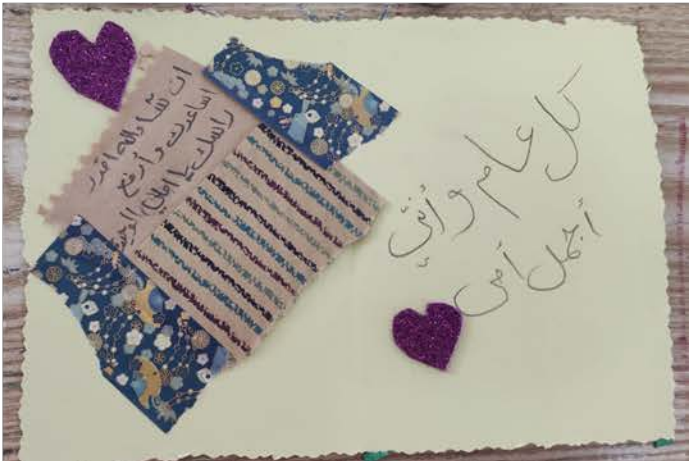 كل عام وأنتي
أجمل أمي
ان شاءالله اقدر
اساعدك وأرفع
راسك يا